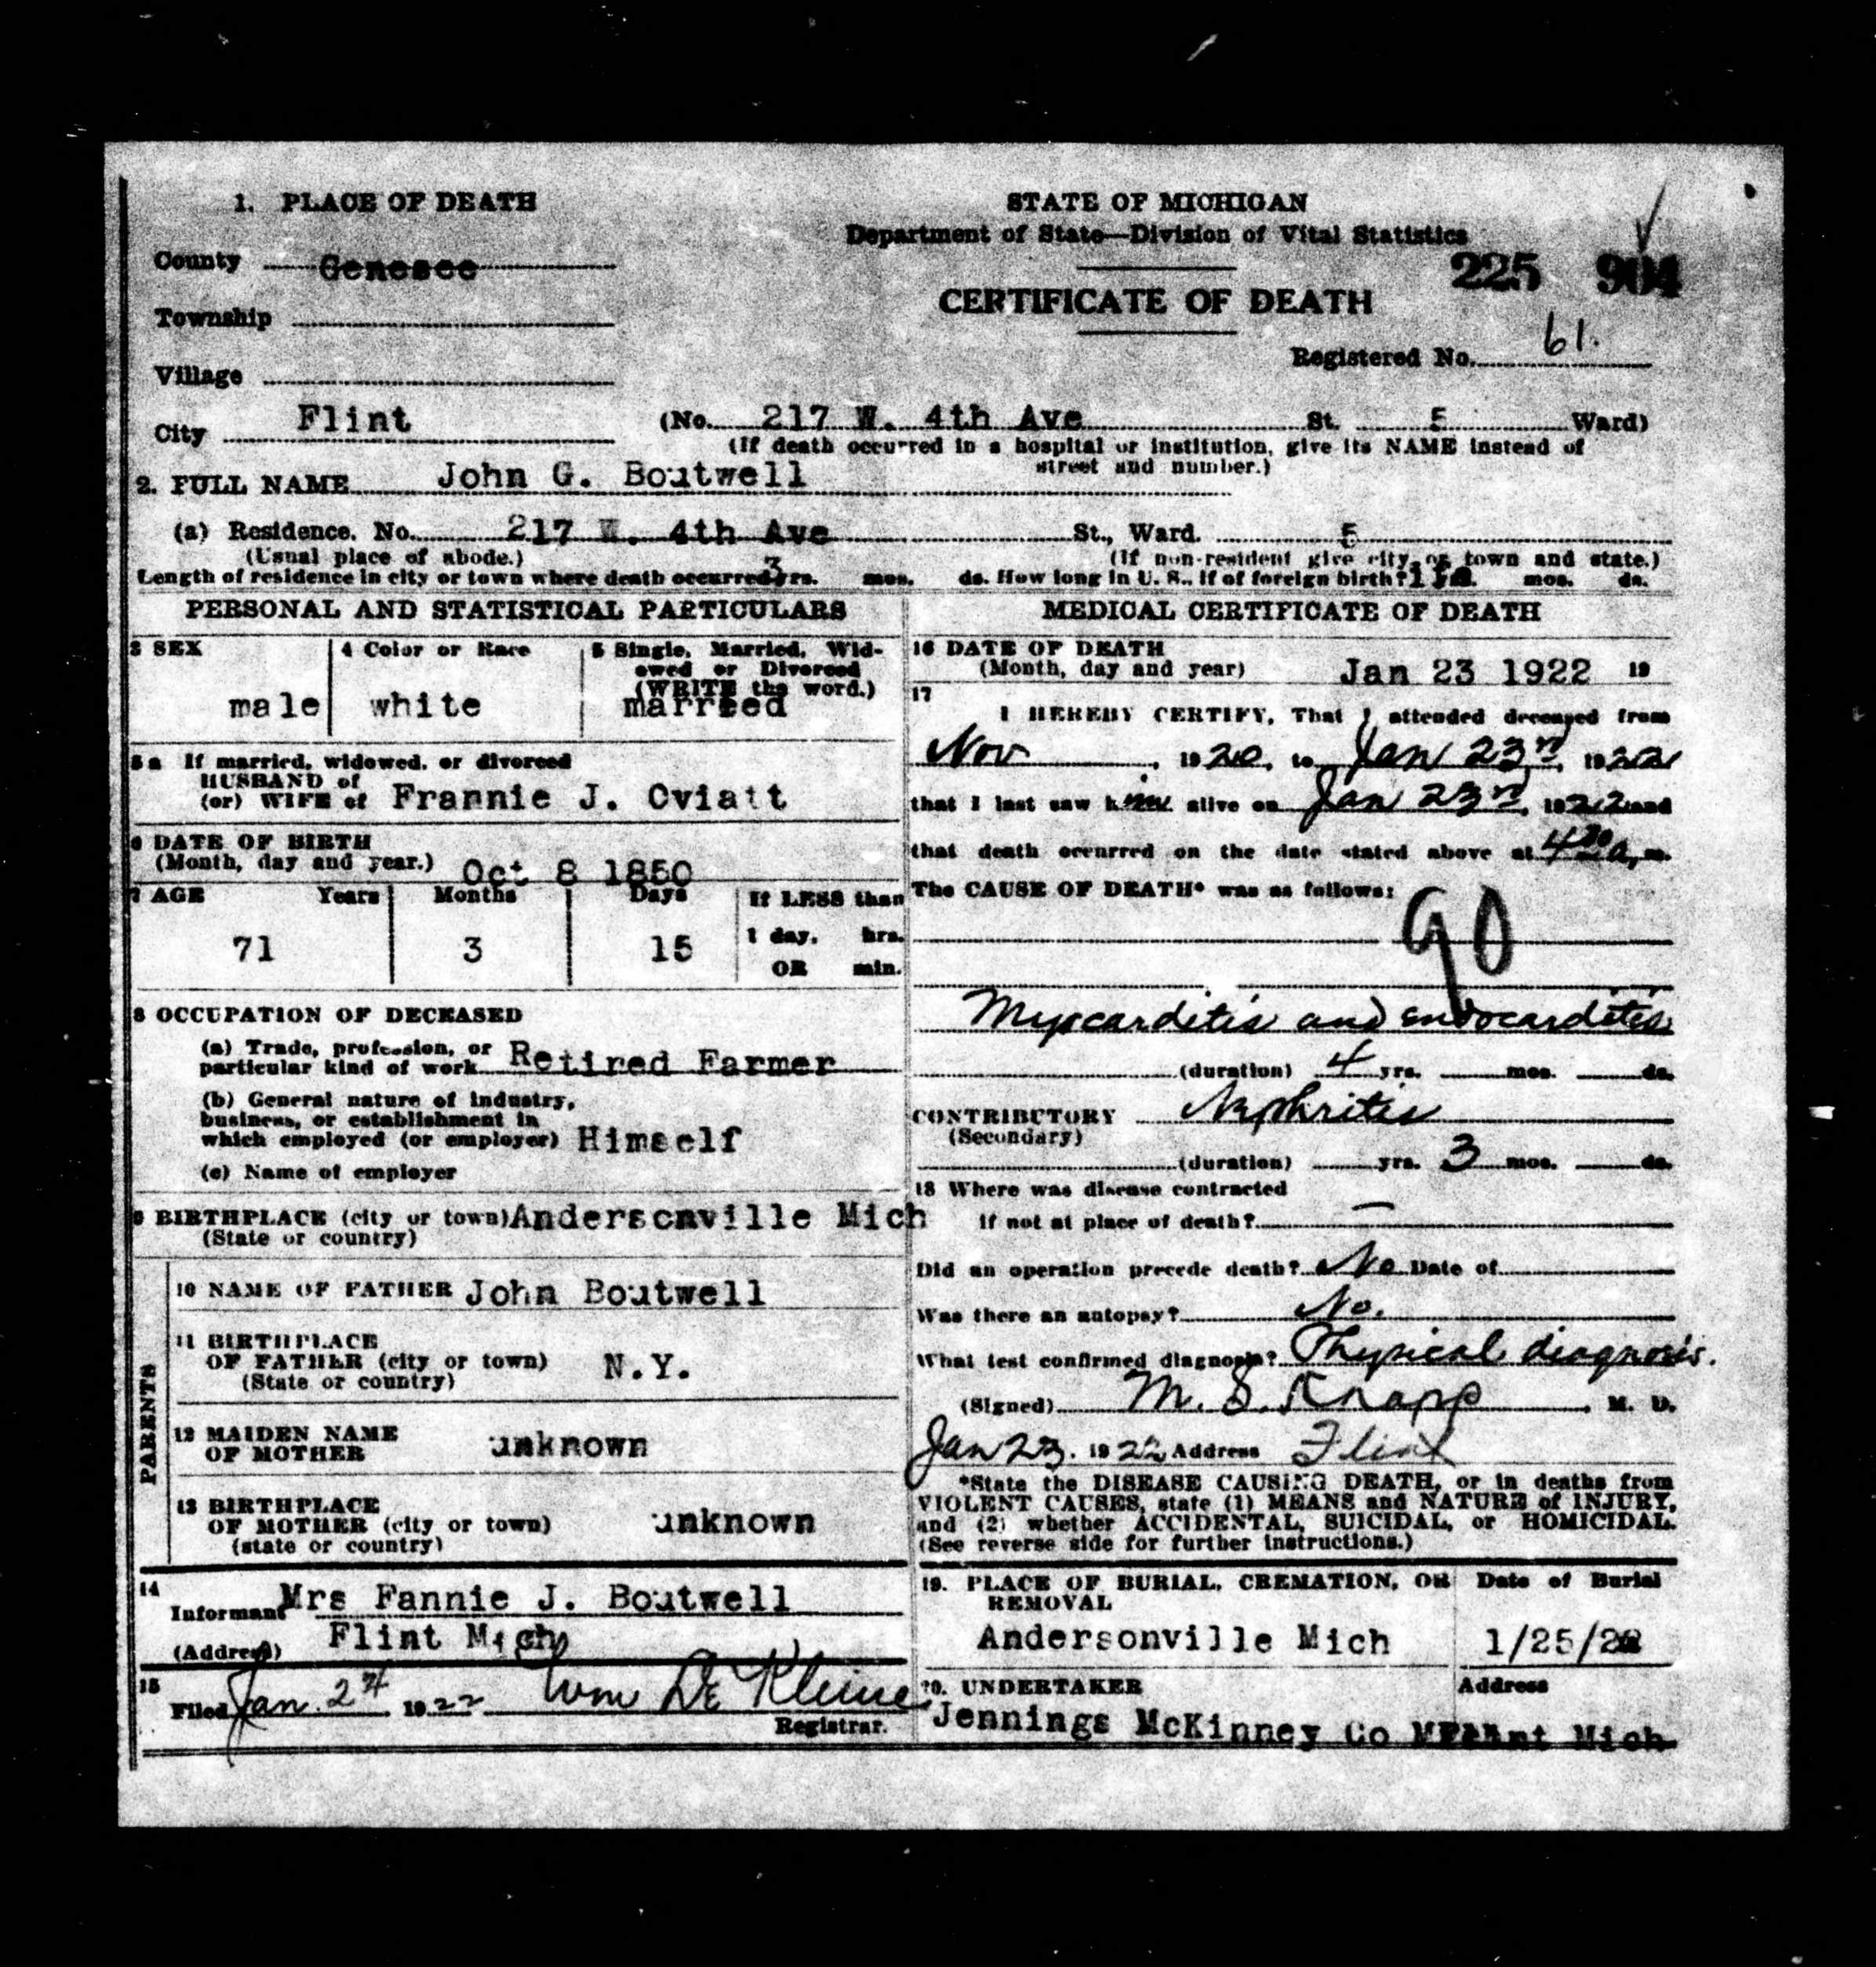 1. PLACE OF DEATH
County Genesee
Township
Village
City Flint
STATE OF MICHIGAN
Department of State—Division of Vital Statistics
225 904
CERTIFICATE OF DEATH
Registered No. 61.
(No. 217 W. 4th Ave St. 5 Ward)
(If death occurred in a hospital or institution, give its NAME instead of
street and number.)
2. FULL NAME John G. Boutwell
(a) Residence. No. 217 W. 4th Ave St., Ward. 5
(Usual place of abode.) (If non-resident give city or town and state.)
Length of residence in city or town where death occurred 3 yrs. mos. ds. How long in U. S., if of foreign birth? yrs. mos. ds.
PERSONAL AND STATISTICAL PARTICULARS
3 SEX
male
4 Color or Race
white
5 Single, Married, Wid-
owed or Divorced
(WRITE the word.)
marreed
5a If married, widowed, or divorced
HUSBAND of
(or) WIFE of Frannie J. Oviatt
6 DATE OF BIRTH
(Month, day and year.) Oct 8 1850
7 AGE Years Months Days If LESS than
71 3 15 1 day, hrs.
OR min.
8 OCCUPATION OF DECEASED
(a) Trade, profession, or
particular kind of work Retired Farmer
(b) General nature of industry,
business, or establishment in
which employed (or employer) Himself
(c) Name of employer
9 BIRTHPLACE (city or town) Andersonville Mich
(State or country)
PARENTS
10 NAME OF FATHER John Boutwell
11 BIRTHPLACE
OF FATHER (city or town) N.Y.
(State or country)
12 MAIDEN NAME
OF MOTHER unknown
13 BIRTHPLACE
OF MOTHER (city or town) unknown
(state or country)
14
Informant Mrs Fannie J. Boutwell
(Address) Flint Mich
15
Filed Jan. 24 1922 Wm De Kleine
Registrar.
MEDICAL CERTIFICATE OF DEATH
16 DATE OF DEATH
(Month, day and year) Jan 23 1922 19
17
I HEREBY CERTIFY, That I attended deceased from
Nov , 1920, to Jan 23rd, 1922
that I last saw him alive on Jan 23rd, 1922 and
that death occurred on the date stated above at 4 30 a, m.
The CAUSE OF DEATH* was as follows:
90
Myocarditis and endocarditis
(duration) 4 yrs. mos. ds.
CONTRIBUTORY Nephritis
(Secondary)
(duration) yrs. 3 mos. ds.
18 Where was disease contracted
if not at place of death? —
Did an operation precede death? No Date of
Was there an autopsy? No.
What test confirmed diagnosis? Physical diagnosis.
(Signed) M. S. Knapp, M. D.
Jan 23. 1922 Address Flint
*State the DISEASE CAUSING DEATH, or in deaths from
VIOLENT CAUSES, state (1) MEANS and NATURE of INJURY,
and (2) whether ACCIDENTAL, SUICIDAL, or HOMICIDAL.
(See reverse side for further instructions.)
19. PLACE OF BURIAL, CREMATION, OR
REMOVAL
Andersonville Mich
Date of Burial
1/25/22
20. UNDERTAKER Address
Jennings McKinney Co Flint Mich